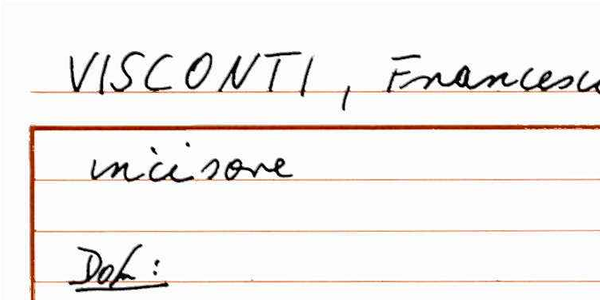 VISCONTI, Francesco
incisore
Dok: